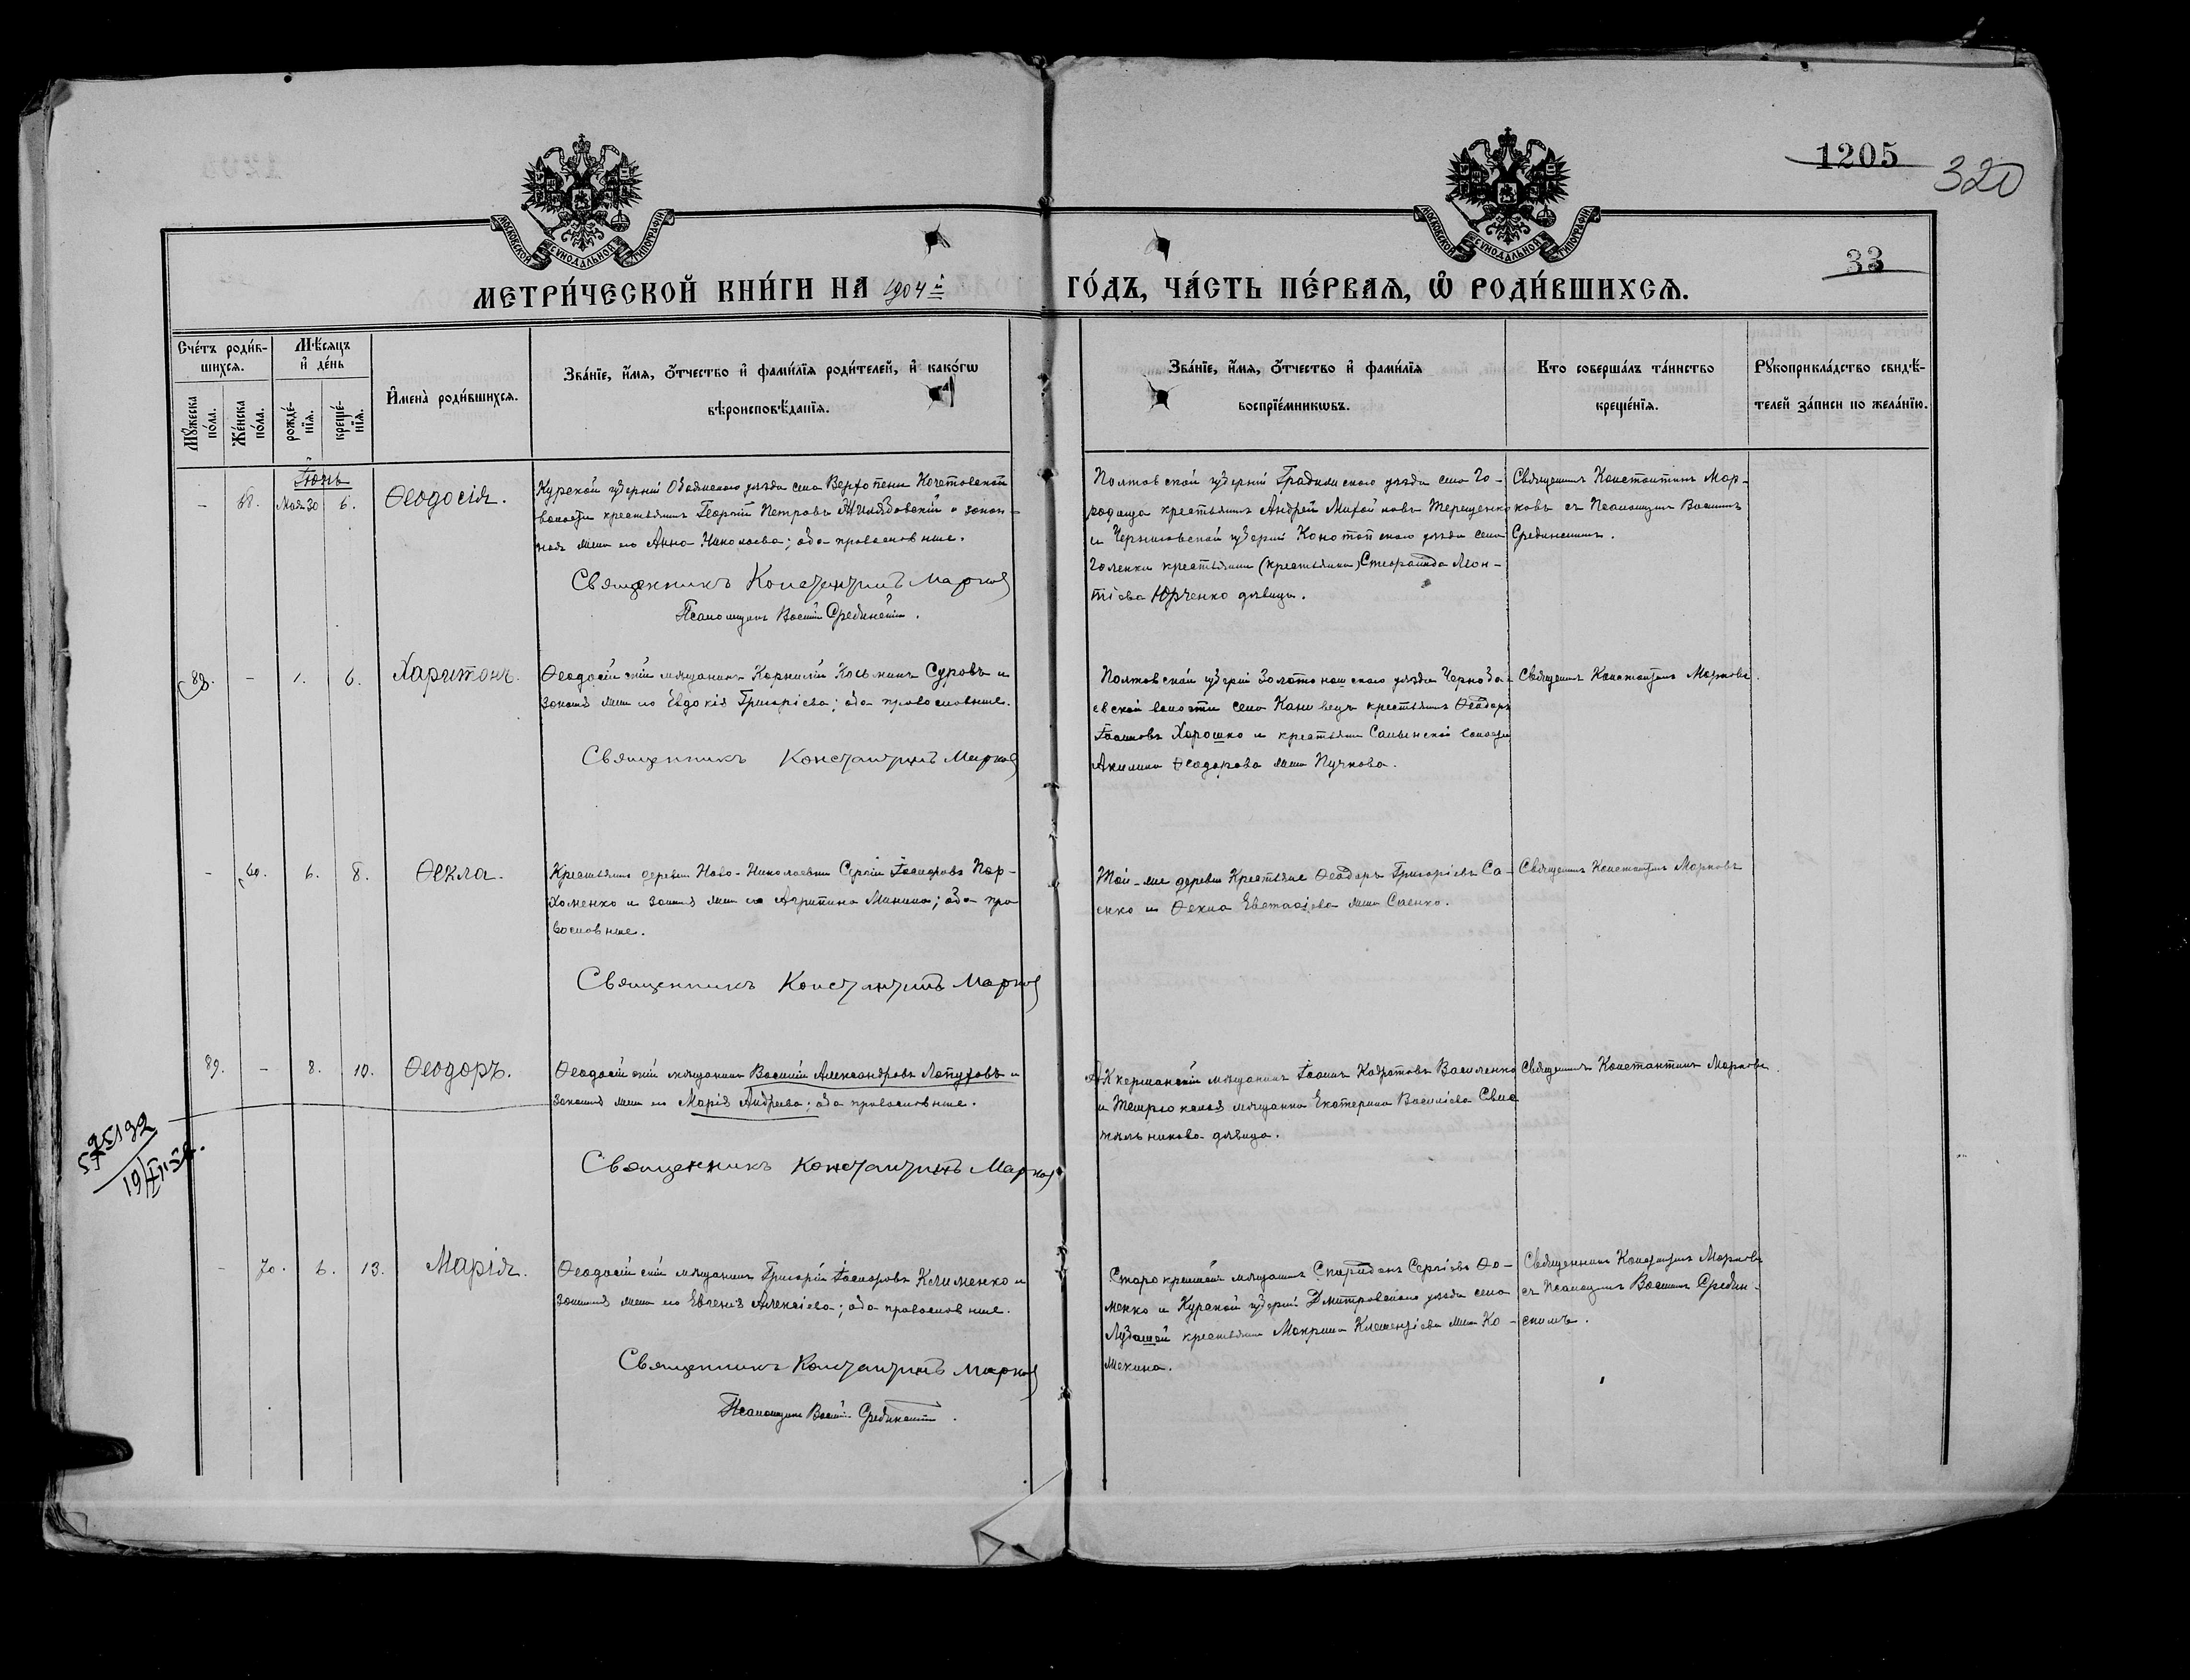 1205
320
33
МОСКОВСКОЙ СѴНОДАЛЬНОЙ ТИПОГРАФІИ
МОСКОВСКОЙ СѴНОДАЛЬНОЙ ТИПОГРАФІИ
МЕТРИ́ЧЕСКОЙ КНИ́ГИ НА 1904й ГО́ДЪ, ЧА́СТЬ ПЕ́РВАѦ, Ѡ РОДИ́ВШИХСѦ.
Сче́тъ роди́в-
шихся.
Мѣ́сяцъ
и҆ де́нь
Мꙋ́жеска по́ла.
Же́нска по́ла.
рожде́-нїя.
креще́-нїя.
И҆мена̀ роди́вшихся.
Зва́нїе, и҆́мя, ѻ҆́тчество и҆ фами́лїя роди́телей, и҆ како́гѡ
вѣроисповѣ́данїя.
Зва́нїе, и҆́мя, ѻ҆́тчество и҆ фами́лїя
воспрїе́мникѡвъ.
Кто соверша́лъ та́инство
креще́нїя.
Рꙋкоприкла́дство свидѣ́-
телей за́писи по жела́нїю.
Іюнь
- 68. Мая 30 6. Ѳеодосія.
Курской губерніи Обоянскаго уѣзда села Верхопенья Кочетовской
волости крестьянинъ Георгій Петровъ и закон-
ная жена его Анна Николаева; оба православные.
Священникъ Константинъ Марковъ
Псаломщикъ Василій Срединскій.
Полтавской губерніи Градижскаго уѣзда села Го-
родища крестьянинъ Андрей Терещенко
и Черниговской губерніи Конотопскаго уѣзда села
Голенки крестьянина (крестьянина) Стефанида Леон-
тіева Юрченко дѣвица.
Священникъ Константинъ Мар-
ковъ съ Псаломщик. Василіемъ
Срединскимъ.
88. - 1. 6. Харитонъ.
Ѳеодосійскій мѣщанинъ Корнилій Косьминъ Суровъ и
законная жена его Евдокія Григоріева; оба православные.
Священникъ Константинъ Марковъ
Полтавской губерніи Золотоношскаго уѣзда Чернобa-
евской волости села крестьянинъ Ѳеодоръ
Іоанновъ Харошко и крестьянка волости
Акилина Ѳеодорова жена Пучкова.
Священникъ Константинъ Марковъ.
- 69. 6. 8. Ѳекла.
Крестьянинъ деревни Ново-Николаевки Сергій Пар-
хоменко и законная жена его Агрипина Минина; оба пра-
вославные.
Священникъ Константинъ Марковъ
Той-же деревни Крестьяне Ѳеодоръ Григоріевъ Са-
енко и Ѳекла Евстафіева жена Саенко.
Священникъ Константинъ Марковъ
89. - 8. 10. Ѳеодоръ.
Ѳеодосійскій мѣщанинъ Василій Александровъ Лопуховъ и
законная жена его Марія Андреева; оба православные.
Священникъ Константинъ Марковъ
Аккерманскій мѣщанинъ Іоаннъ Кодратовъ Василенко
и Темрюкская мѣщанка Екатерина Василіева
дѣвица.
Священникъ Константинъ Марковъ.
- 70. 6. 13. Марія.
Ѳеодосійскій мѣщанинъ Григорій Клименко и
законная жена его Евгенія Алексіева; оба православные.
Священникъ Константинъ Марковъ
Псаломщикъ Василій Срединскій.
Старокрымскій мѣщанинъ Спиридонъ Сергіевъ Ѳо-
менко и Курской губерніи Дмитровскаго уѣзда села
крестьянина Макрина жена Ко-
Священникъ Константинъ Марковъ
съ Псаломщик. Василіемъ Средин-
скимъ.